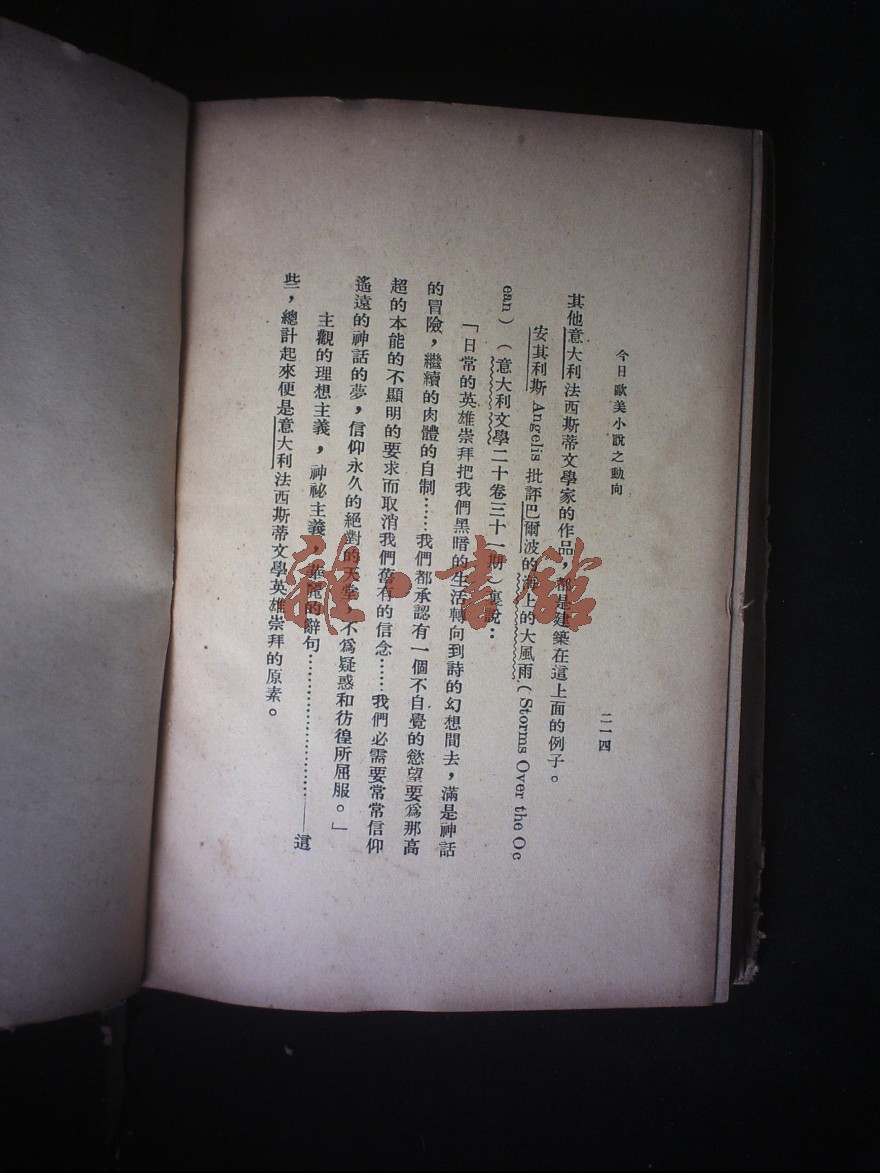 今日歐美小說之動向
二一四
其他意大利法西斯蒂文學家的作品，都是建築在這上面的例子。
安其利斯 Angelis 批評巴爾波的海上的大風雨（Storms Over the Oc
ean）（意大利文學二十卷三十一期）裏說：
「日常的英雄崇拜把我們黑暗的生活轉向到詩的幻想間去，滿是神話
的冒險，繼續的肉體的自制……我們都承認有一個不自覺的慾望要爲那高
超的本能的不顯明的要求而取消我們舊有的信念……我們必需要常常信仰
遙遠的神話的夢，信仰永久的絕對的天堂，不爲疑惑和彷徨所屈服。」
主觀的理想主義，神祕主義，華麗的辭句…………………——這
些，總計起來便是意大利法西斯蒂文學英雄崇拜的原素。
書館